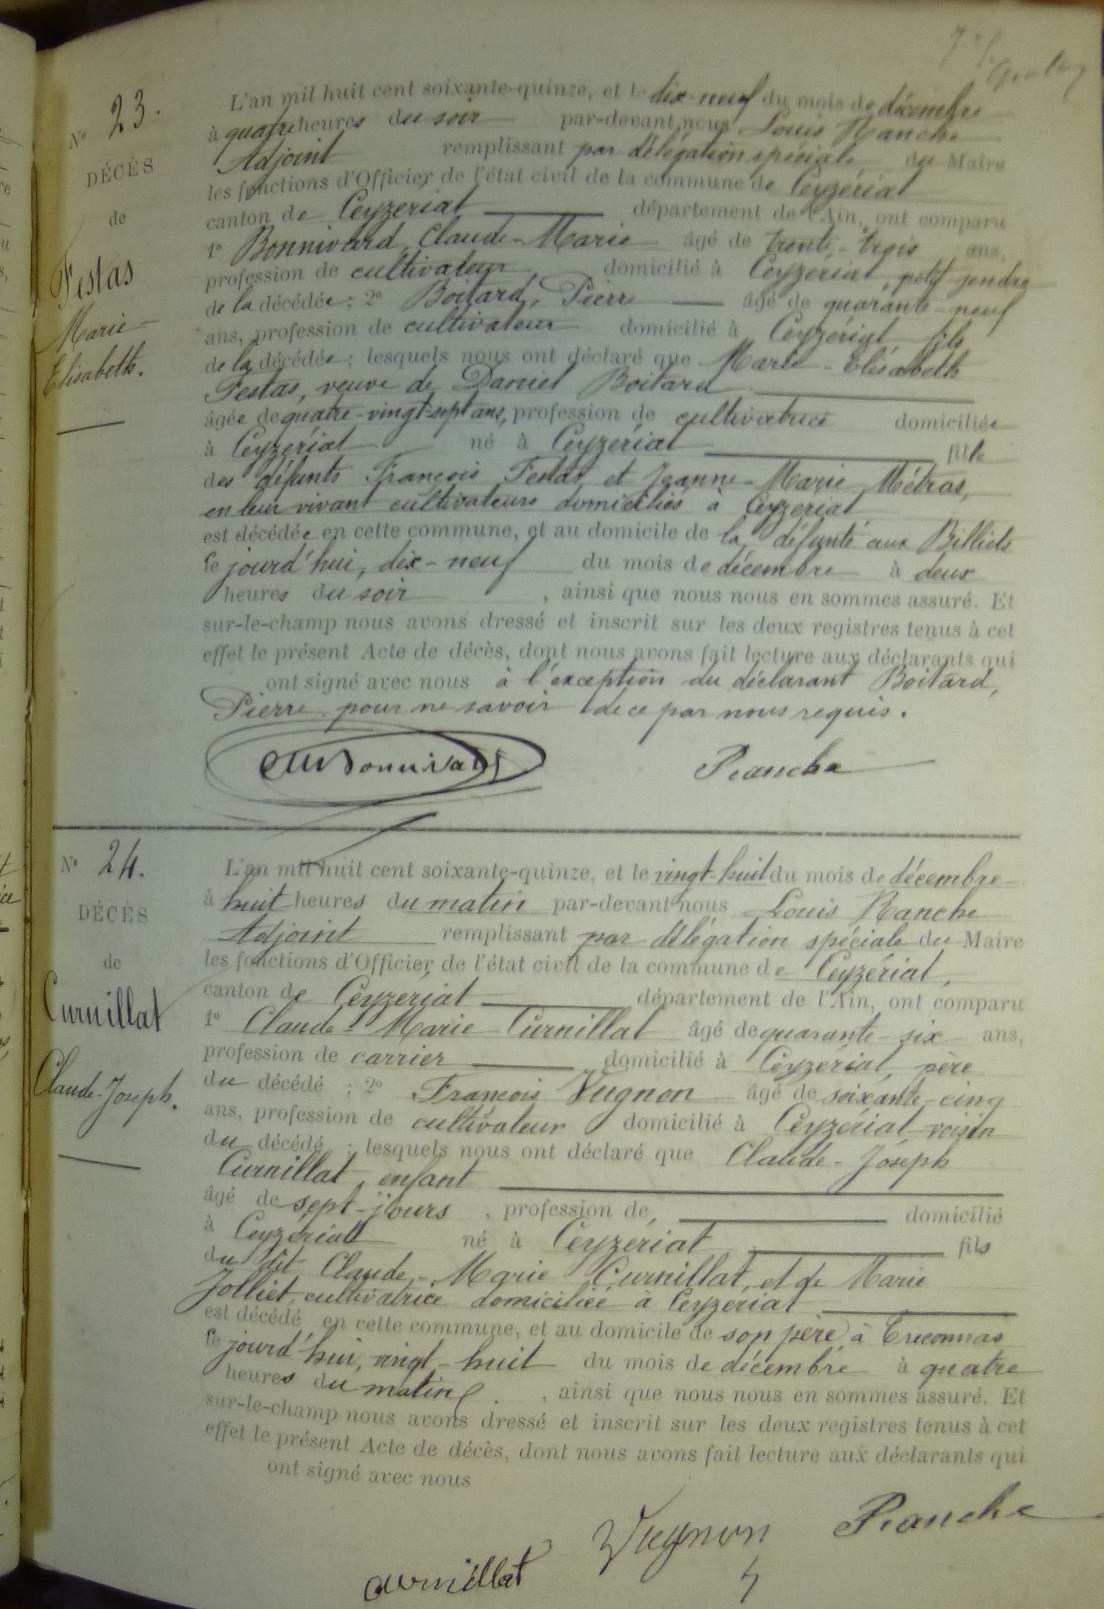 N° 23.
DÉCÈS
de
Festas
Marie-
Elisabeth.
L'an mil huit cent soixante-quinze, et le dix-neuf du mois de décembre
à quatre heures du soir par-devant nous Louis Ranche
Adjoint remplissant par délégation spéciale du Maire
les fonctions d'Officier de l'état civil de la commune de Ceyzériat
canton de Ceyzériat département de l'Ain, ont comparu
1° Bonnivard, Claude-Marie âgé de trente-trois ans,
profession de cultivateur domicilié à Ceyzériat, petit gendre
de la décédée ; 2° Boitard, Pierre âgé de quarante-neuf
ans, profession de cultivateur domicilié à Ceyzériat fils
de la décédée ; lesquels nous ont déclaré que Marie-Elisabeth
Festas, veuve de Daniel Boitard
âgée de quatre-vingt-sept ans, profession de cultivatrice domiciliée
à Ceyzériat né à Ceyzériat fille
des défunts François Festas et Jeanne-Marie Métras,
en leur vivant cultivateurs domiciliés à Ceyzériat
est décédée en cette commune, et au domicile de la défunte aux Billiets
le jourd'hui, dix-neuf du mois de décembre à deux
heures du soir , ainsi que nous nous en sommes assuré. Et
sur-le-champ nous avons dressé et inscrit sur les deux registres tenus à cet
effet le présent Acte de décès, dont nous avons fait lecture aux déclarants qui
ont signé avec nous à l'exception du déclarant Boitard,
Pierre pour ne savoir de ce par nous requis.
Bonnivard Ranche
N° 24.
DÉCÈS
de
Curnillat
Claude-Joseph.
L'an mil huit cent soixante-quinze, et le vingt-huit du mois de décembre
à huit heures du matin par-devant nous Louis Ranche
Adjoint remplissant par délégation spéciale du Maire
les fonctions d'Officier de l'état civil de la commune de Ceyzériat,
canton de Ceyzériat département de l'Ain, ont comparu
1° Claude-Marie Curnillat âgé de quarante-six ans,
profession de carrier domicilié à Ceyzériat, père
du décédé ; 2° François Vugnon âgé de soixante-cinq
ans, profession de cultivateur domicilié à Ceyzériat voisin
du décédé ; lesquels nous ont déclaré que Claude-Joseph
Curnillat, enfant
âgé de sept-jours , profession de domicilié
à Ceyzériat né à Ceyzériat fils
du dit Claude-Marie Curnillat, et de Marie
Jolliet, cultivatrice domiciliée à Ceyzériat
est décédé en cette commune, et au domicile de son père à Treconnas
le jourd'hui, vingt-huit du mois de décembre à quatre
heures du matin , ainsi que nous nous en sommes assuré. Et
sur-le-champ nous avons dressé et inscrit sur les deux registres tenus à cet
effet le présent Acte de décès, dont nous avons fait lecture aux déclarants qui
ont signé avec nous
Curnillat Vugnon Ranche